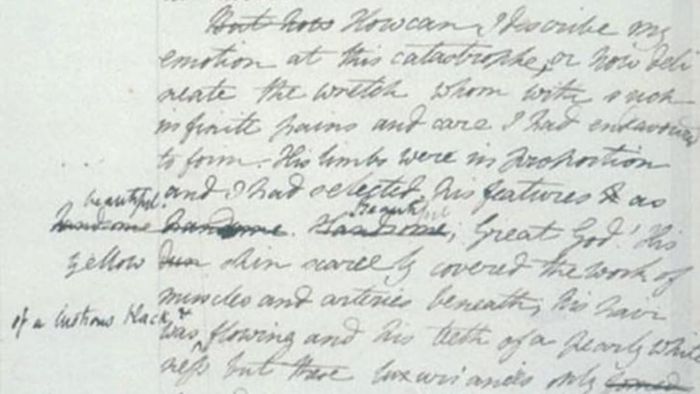 But how How can I describe my
emotion at this catastrophe, or how deli
neate the wretch whom with such
infinite pains and care I had endeavoured
to form. His limbs were in proportion
and I had selected his features & as
beautiful.
handsome handsome. Beautiful
Handsome, Great God! His
yellow dun skin scarcely covered the work of
muscles and arteries beneath; his hair
of a lustrous black, &
was flowing and his teeth of a pearly white
ness but these luxuriances only formed